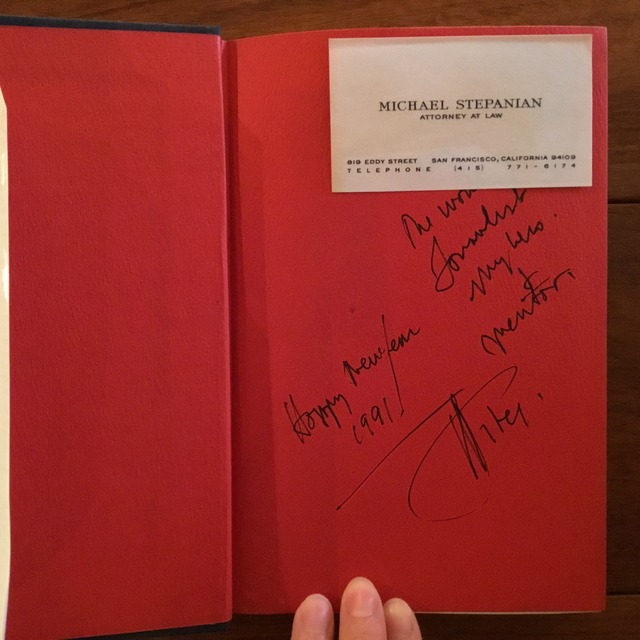 MICHAEL STEPANIAN
ATTORNEY AT LAW
819 EDDY STREET SAN FRANCISCO, CALIFORNIA 94109
TELEPHONE (415) 771-6174
The
Journalist
My hero.
&
mentor.
Happy New Year
1991